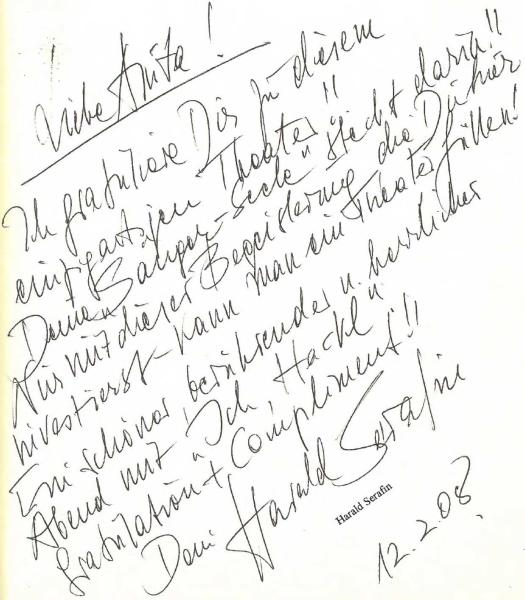 Liebe Anita!
Ich gratuliere Dir zu diesem
einzigartigen Theater!!
Deine "Sänger-Seele" steckt darin!!
Nur mit dieser Begeisterung die Du hier
investierst - kann man ein Theater füllen!
Ein schöner, berührender u. herrlicher
Abend mit "Ich, Hackl"
Gratulation + Compliment!!
Dein Harald Serafin
Harald Serafin
12.2.08